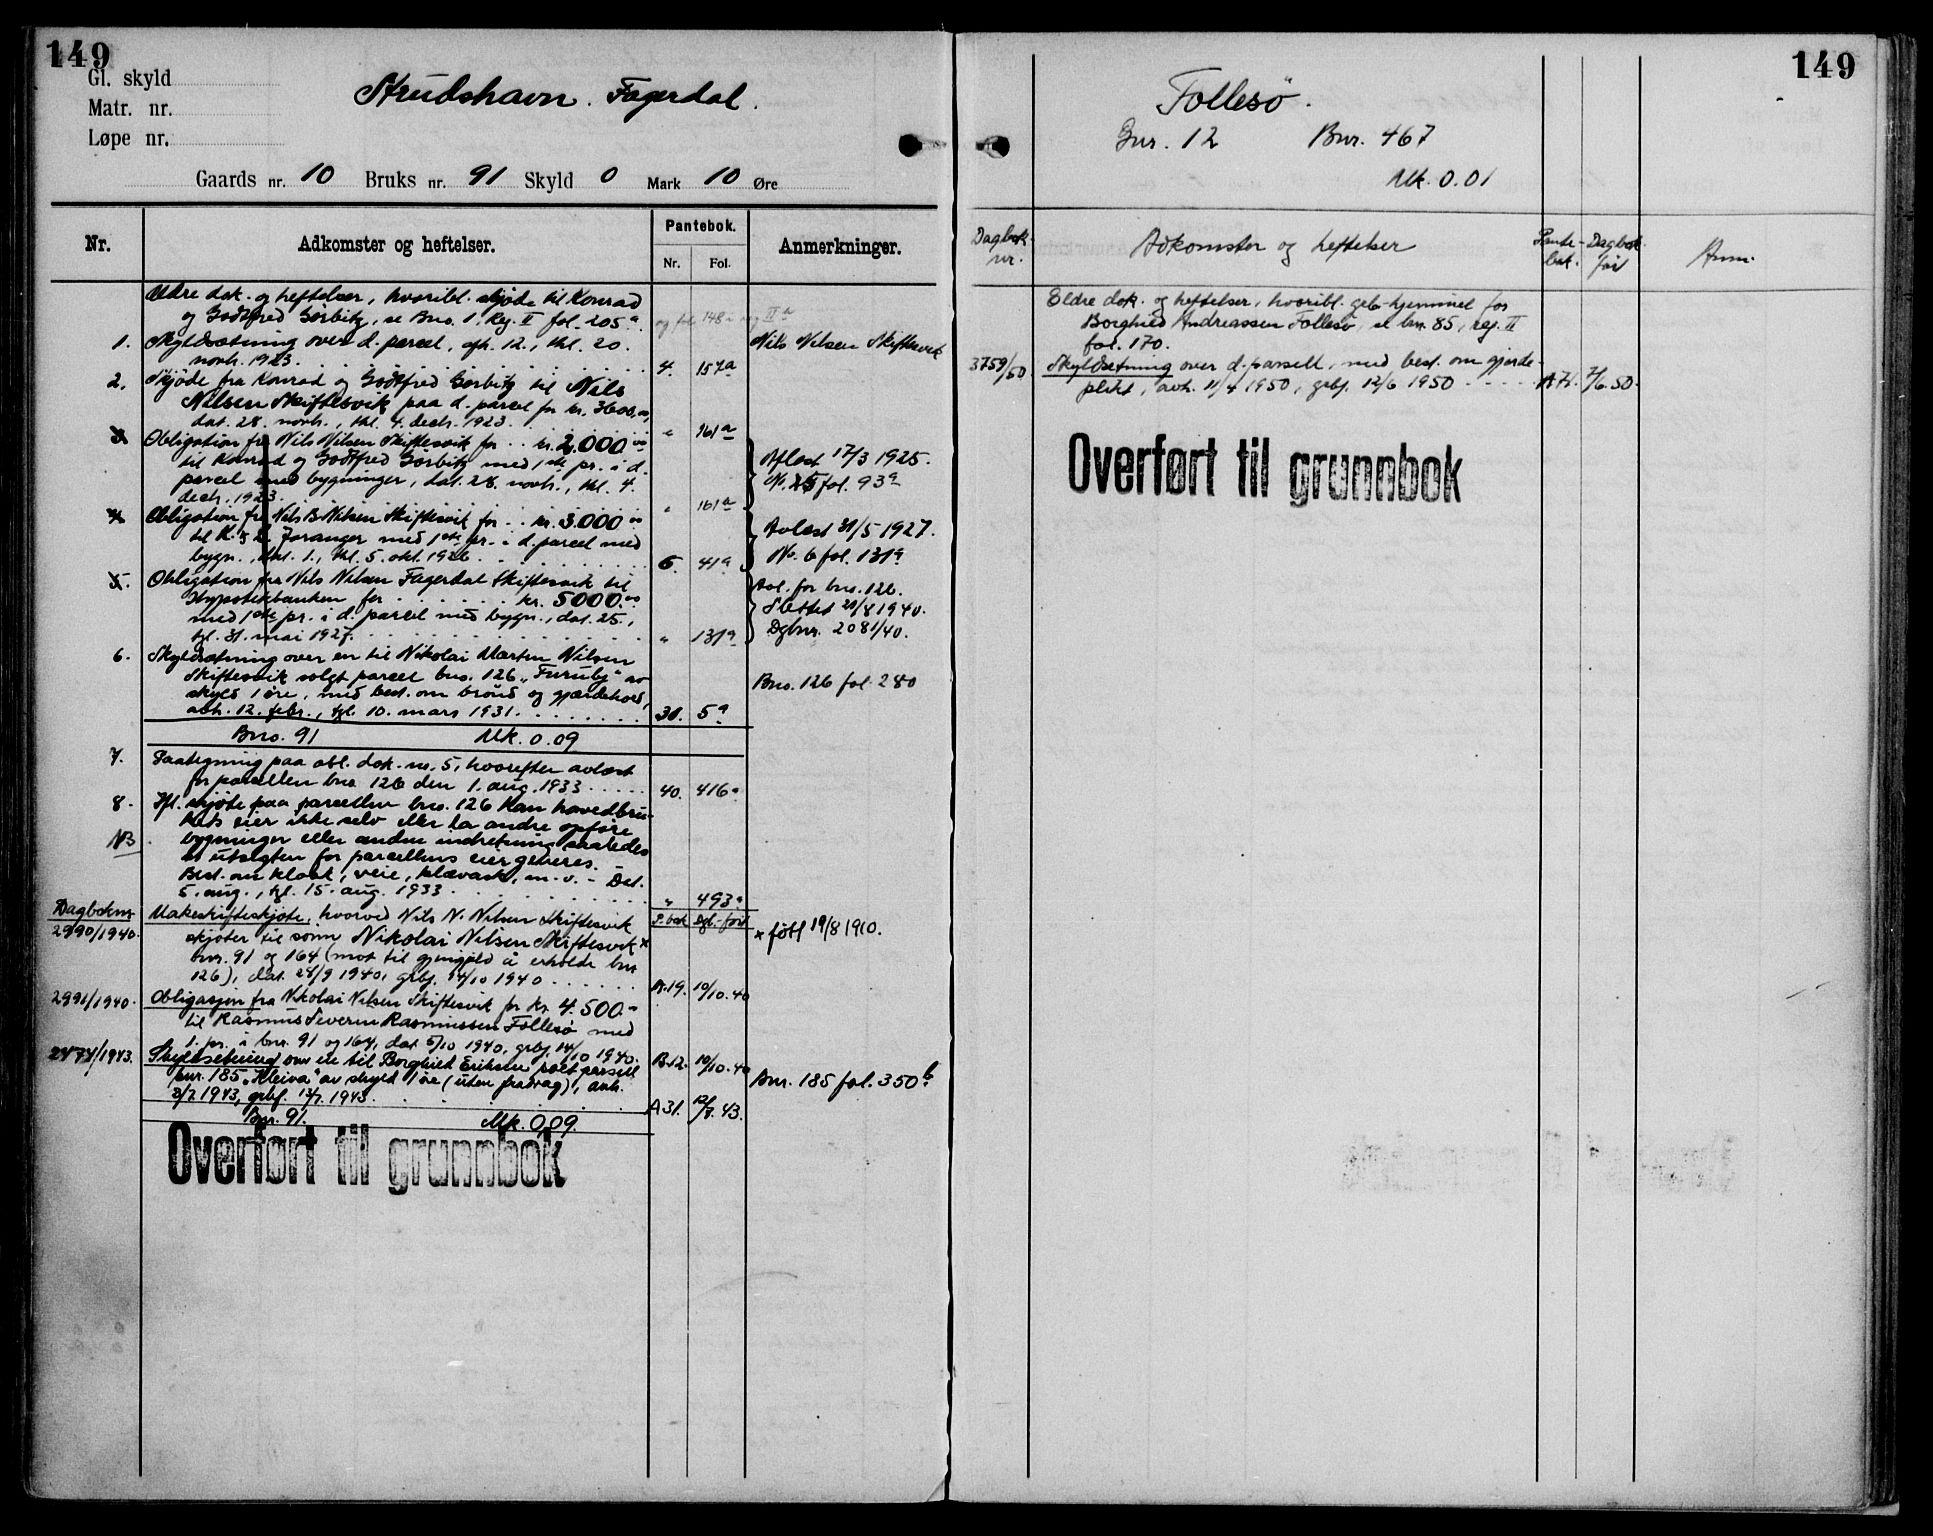 149
Gl. skyld
Matr. nr.
Løpe nr.
Strudshavn. Fagerdal.
Gaards nr. 10 Bruks nr. 91 Skyld 0 Mark 10 Øre
Nr.
Adkomster og heftelser.
Pantebok.
Nr. Fol.
Anmerkninger.
Ældre dok. og heftelser, hvoribl. skjøde til Konrad
og Godtfred Gørbitz, se Bno. 1, Reg. II fol. 205a. og fol. 148 a reg IIa
1. Skyldsætning over d. parcel, afh. 12., thl. 20. Nils Nilsen Skiftesvik
novb. 1923. 4. 157a
2. Skjøde fra Konrad og Godtfred Gørbitz til Nils
Nilsen Skiftesvik paa d. parcel for kr. 3600,00,
dat. 28. novb., thl. 4. decb. 1923. " 161a
3. Obligation fra Nils Nilsen Skiftesvik for kr. 2.000 00
til Konrad og Godtfred Gørbitz med 1ste pr. i d. Aflæst 17/3 1925.
parcel med bygninger, dat. 28. novb., thl. 4. N. 25 fol. 93a
decb. 1923. " 161a
4. Obligation fra Nils B. Nilsen Skiftesvik for kr. 3.000 00
til K. & L. Joranger med 1ste pr. i d. parcel med Avlæst 31/5 1927.
bygn., dat. 1., thl. 5. okt. 1926. 6. 41a No. 6 fol. 131a
5. Obligation fra Nils Nilsen Fagerdal Skiftesvik til Avl. for bno. 126.
Hypotekbanken for kr. 5000.00 Slettet 21/8 1940.
med 1ste pr. i d. parcel med bygn., dat. 25., Dgbnr. 2081/40.
tgl. 31. mai 1927. " 131a
6. Skyldsætning over en til Nikolai Martin Nilsen
Skiftesvik solgt parcel bno. 126 "Furuly" av Bno. 126 fol. 280
skyld 1 øre, med best. om brønd og gjærdehold,
avh. 12. febr., tgl. 10. mars 1931. 30. 5a
Bno. 91 Mk. 0.09
7. Paategning paa obl. dok. nr. 5, hvorefter avlæst
for parcellen bno. 126 den 1. aug. 1933 40. 416a
8. Ifl. skjøte paa parcellen bno. 126 kan hovedbru-
kets eier ikke selv eller la andre opføre
NB bygninger eller anden indretning saaledes
at utsigten for parcellens eier generes.
Best. om kloak, veie, klævask, m. v. - Dat.
5. aug., tgl. 15. aug. 1933. " 493a
Dagboknr P. bok Dgl. ført
2990/1940. Makeskifteskjøte, hvorved Nils N. Nilsen Skiftesvik x født 19/8 1910.
skjøter til sønn Nikolai Nilsen Skiftesvik x
bnr. 91 og 164 (mot til gjengjeld å erholde bnr
126), dat. 28/9 1940, grbf. 14/10 1940 A.19. 10/10.40
2991/1940. Obligasjon fra Nikolai Nilsen Skiftesvik for kr. 4.500.-
til Rasmus Severin Rasmussen Follesø med
1. pr. i bnr. 91 og 164, dat 5/10 1940, grbf. 14/10 1940. B.12. 10/10.40
2474/1943. Skyldsetning over en til Borghild Eriksen solt parsell
bnr. 185 "Kleiva" av skyld 1 øre (uten fradrag), avh. Bnr. 185 fol. 350b
3/7 1943, grbf. 13/7. 1943. A 31. 12/7.43.
Bnr. 91. Mk. 0,09.
Overført til grunnbok
149
Follesö.
Gnr. 12 Bnr. 467
Mk. 0.01
Dagbok nr. Adkomster og heftelser Pantebok. Dagbok ført Anm.
Eldre dok. og heftelser, hvoribl. grb. hjemmel for
Borghild Andreassen Follesø, se bnr. 85, reg. II
fol. 170.
3759/50. Skyldsetning over d. parsell, med best. om gjerde-
plikt, avh. 11/4 1950, grbf. 12/6 1950 A 71. 7/6.50.
Overført til grunnbok